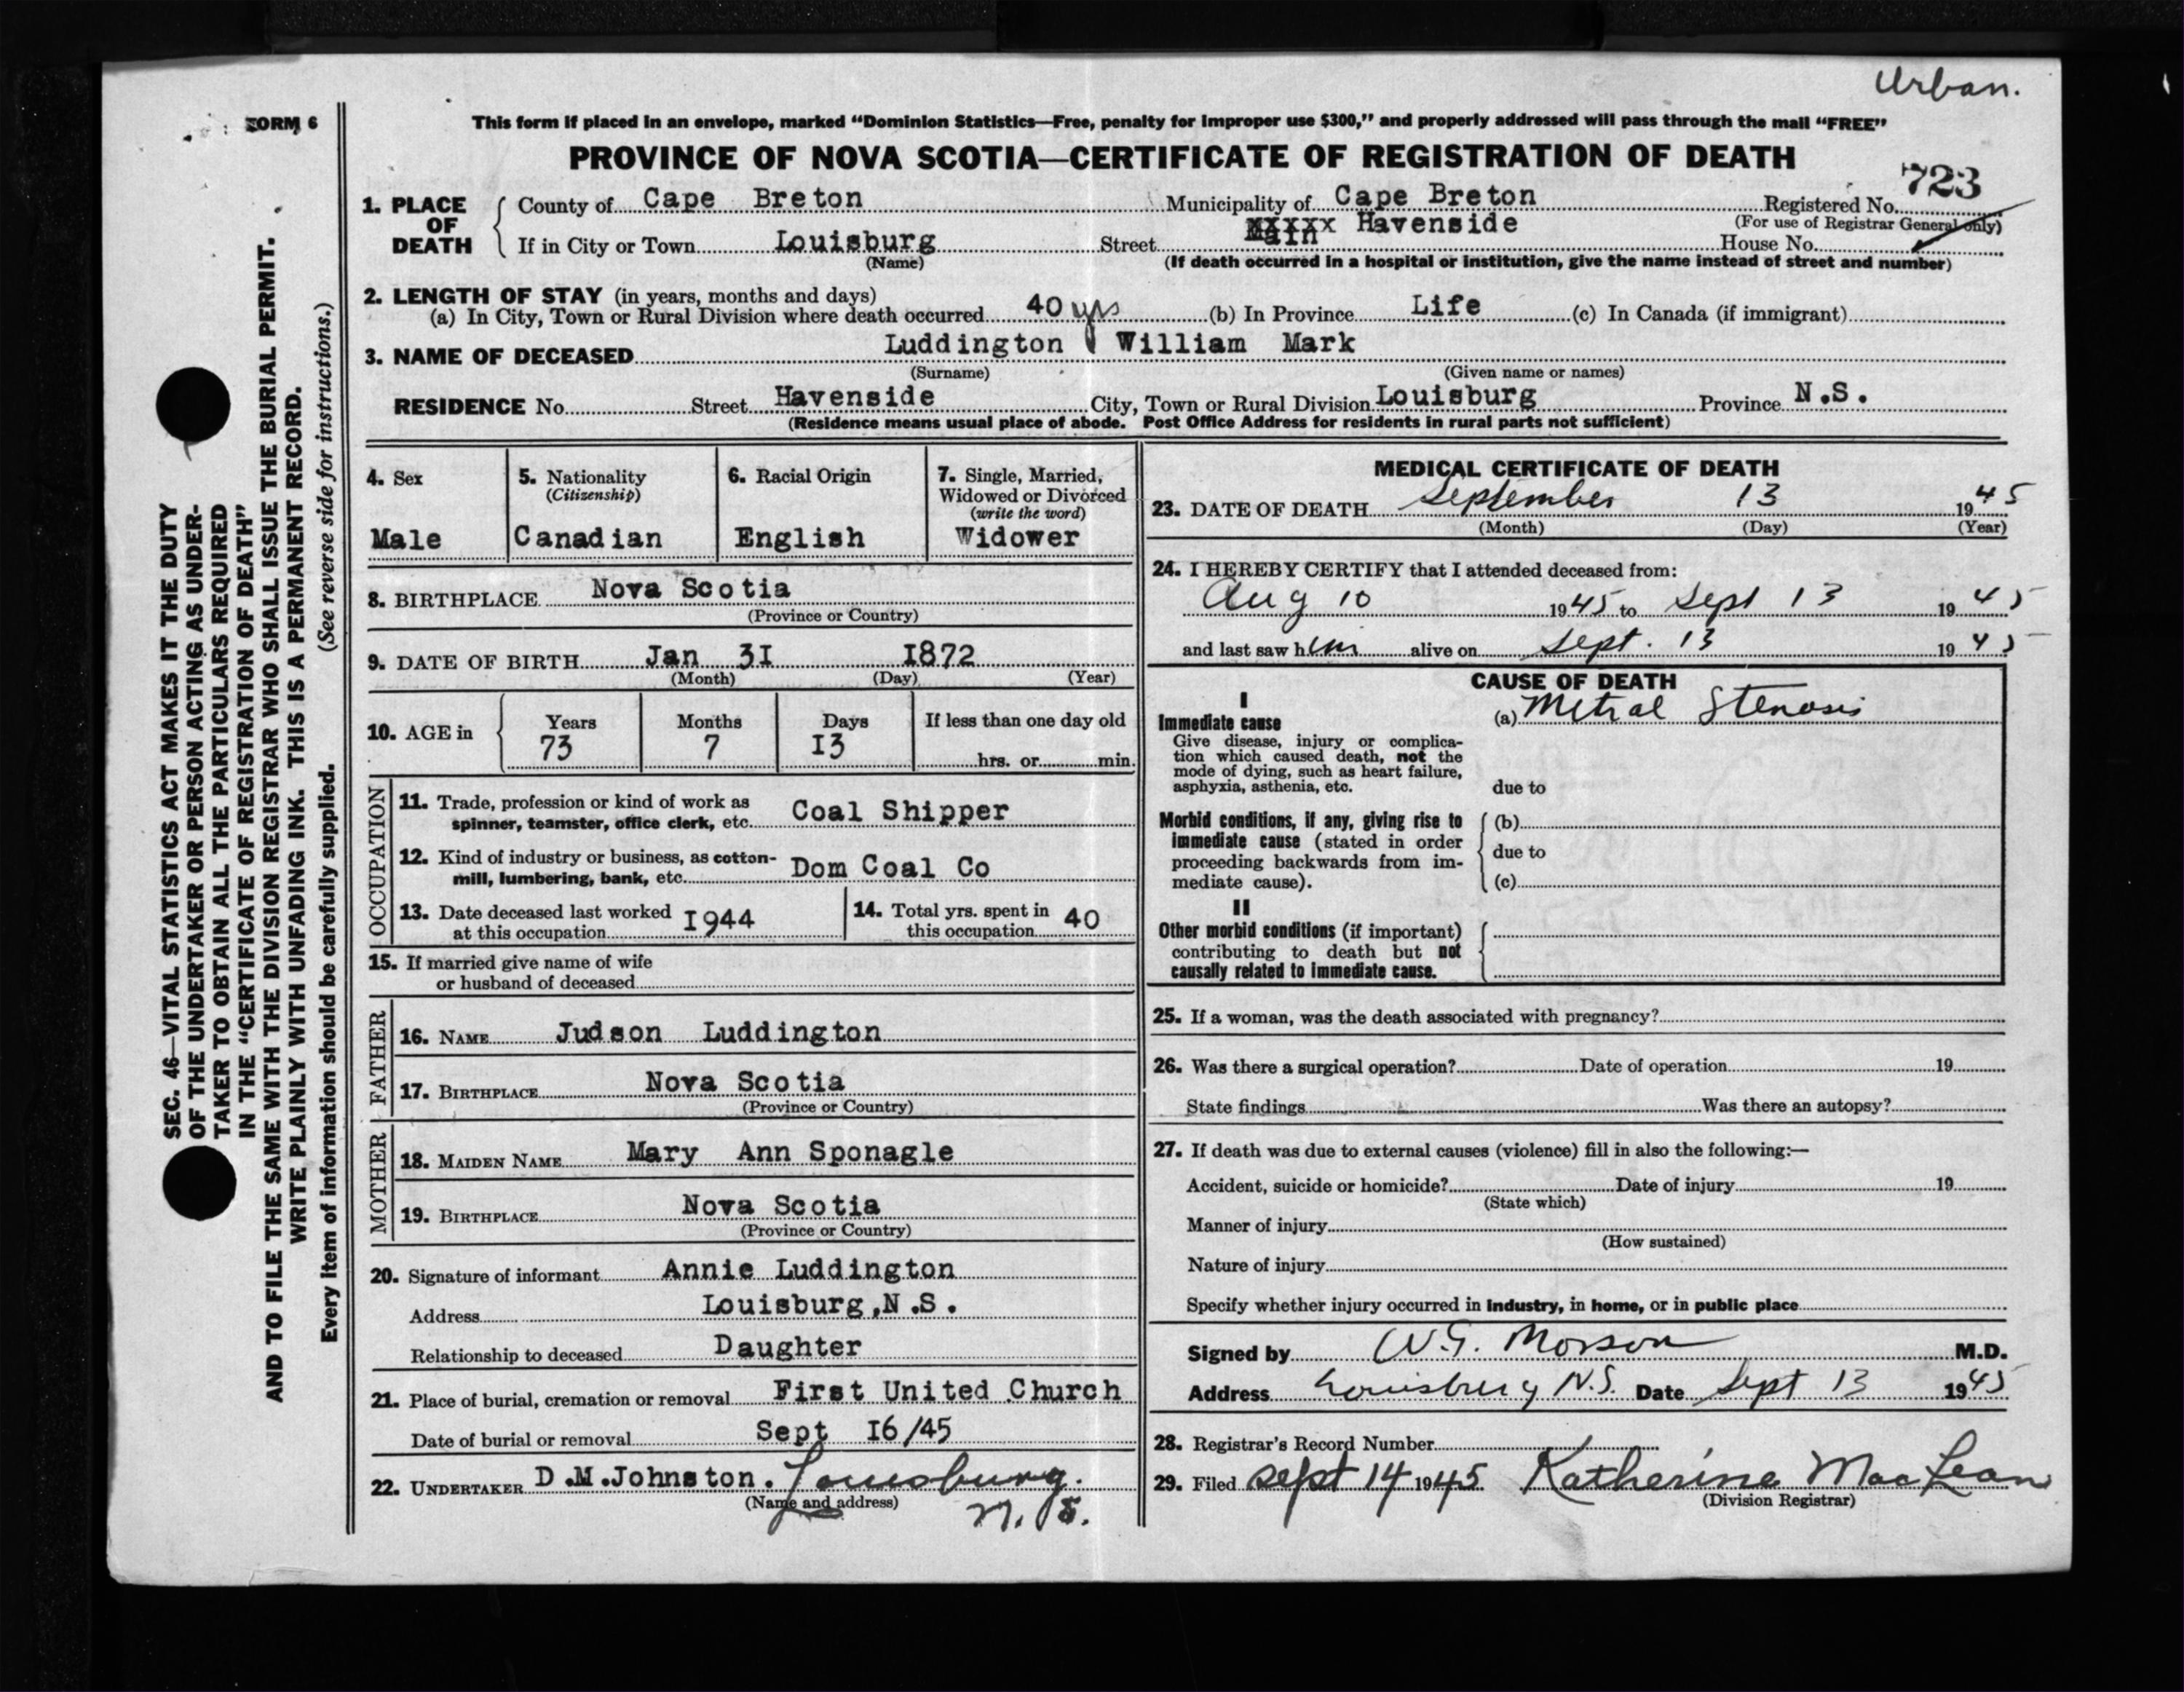 Urban.
FORM 6
This form if placed in an envelope, marked "Dominion Statistics—Free, penalty for improper use $300," and properly addressed will pass through the mail "FREE"
PROVINCE OF NOVA SCOTIA—CERTIFICATE OF REGISTRATION OF DEATH
723
1. PLACE OF DEATH County of Cape Breton Municipality of Cape Breton Registered No.
(For use of Registrar General only)
If in City or Town Louisburg Street Main xxxxx Havenside House No.
(Name) (If death occurred in a hospital or institution, give the name instead of street and number)
2. LENGTH OF STAY (in years, months and days)
(a) In City, Town or Rural Division where death occurred 40 yrs (b) In Province Life (c) In Canada (if immigrant)
3. NAME OF DECEASED Luddington William Mark
(Surname) (Given name or names)
RESIDENCE No. Street Havenside City, Town or Rural Division Louisburg Province N.S.
(Residence means usual place of abode. Post Office Address for residents in rural parts not sufficient)
4. Sex
Male
5. Nationality
(Citizenship)
Canadian
6. Racial Origin
English
7. Single, Married,
Widowed or Divorced
(write the word)
Widower
8. BIRTHPLACE Nova Scotia
(Province or Country)
9. DATE OF BIRTH Jan 31 1872
(Month) (Day) (Year)
10. AGE in Years Months Days If less than one day old
73 7 13 hrs. or min.
OCCUPATION
11. Trade, profession or kind of work as
spinner, teamster, office clerk, etc. Coal Shipper
12. Kind of industry or business, as cotton-
mill, lumbering, bank, etc. Dom Coal Co
13. Date deceased last worked
at this occupation 1944
14. Total yrs. spent in
this occupation 40
15. If married give name of wife
or husband of deceased
FATHER
16. NAME Judson Luddington
17. BIRTHPLACE Nova Scotia
(Province or Country)
MOTHER
18. MAIDEN NAME Mary Ann Sponagle
19. BIRTHPLACE Nova Scotia
(Province or Country)
20. Signature of informant Annie Luddington
Address Louisburg, N.S.
Relationship to deceased Daughter
21. Place of burial, cremation or removal First United Church
Date of burial or removal Sept 16/45
22. UNDERTAKER D.M.Johnston. Louisburg.
(Name and address) N. S.
MEDICAL CERTIFICATE OF DEATH
23. DATE OF DEATH September 13 1945
(Month) (Day) (Year)
24. I HEREBY CERTIFY that I attended deceased from:
Aug 10 1945 to Sept 13 1945
and last saw him alive on Sept. 13 1945
CAUSE OF DEATH
I
Immediate cause (a) Mitral Stenosis
Give disease, injury or complica-
tion which caused death, not the
mode of dying, such as heart failure,
asphyxia, asthenia, etc. due to
Morbid conditions, if any, giving rise to (b)
immediate cause (stated in order
proceeding backwards from im- due to
mediate cause). (c)
II
Other morbid conditions (if important)
contributing to death but not
causally related to immediate cause.
25. If a woman, was the death associated with pregnancy?
26. Was there a surgical operation? Date of operation 19
State findings Was there an autopsy?
27. If death was due to external causes (violence) fill in also the following:—
Accident, suicide or homicide? Date of injury 19
(State which)
Manner of injury
(How sustained)
Nature of injury
Specify whether injury occurred in industry, in home, or in public place
Signed by W.G. Morson M.D.
Address Louisburg N.S. Date Sept 13 1945
28. Registrar's Record Number
29. Filed Sept 14 1945 Katherine MacLean
(Division Registrar)
SEC. 46—VITAL STATISTICS ACT MAKES IT THE DUTY
OF THE UNDERTAKER OR PERSON ACTING AS UNDER-
TAKER TO OBTAIN ALL THE PARTICULARS REQUIRED
IN THE "CERTIFICATE OF REGISTRATION OF DEATH"
AND TO FILE THE SAME WITH THE DIVISION REGISTRAR WHO SHALL ISSUE THE BURIAL PERMIT.
WRITE PLAINLY WITH UNFADING INK. THIS IS A PERMANENT RECORD.
Every item of information should be carefully supplied. (See reverse side for instructions.)